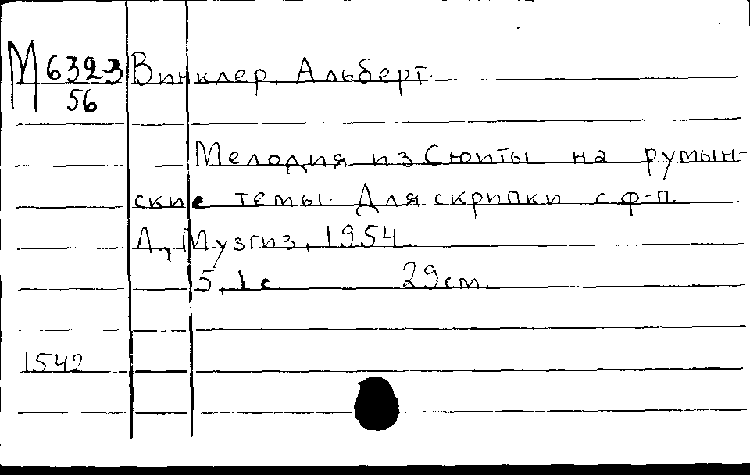 М 6323 Винклер, Альберт.
56
Мелодия из Сюиты на румын-
ские темы. Для скрипки с ф-п.
Л., Музгиз, 1954
5, 1 с 29 см.
1542